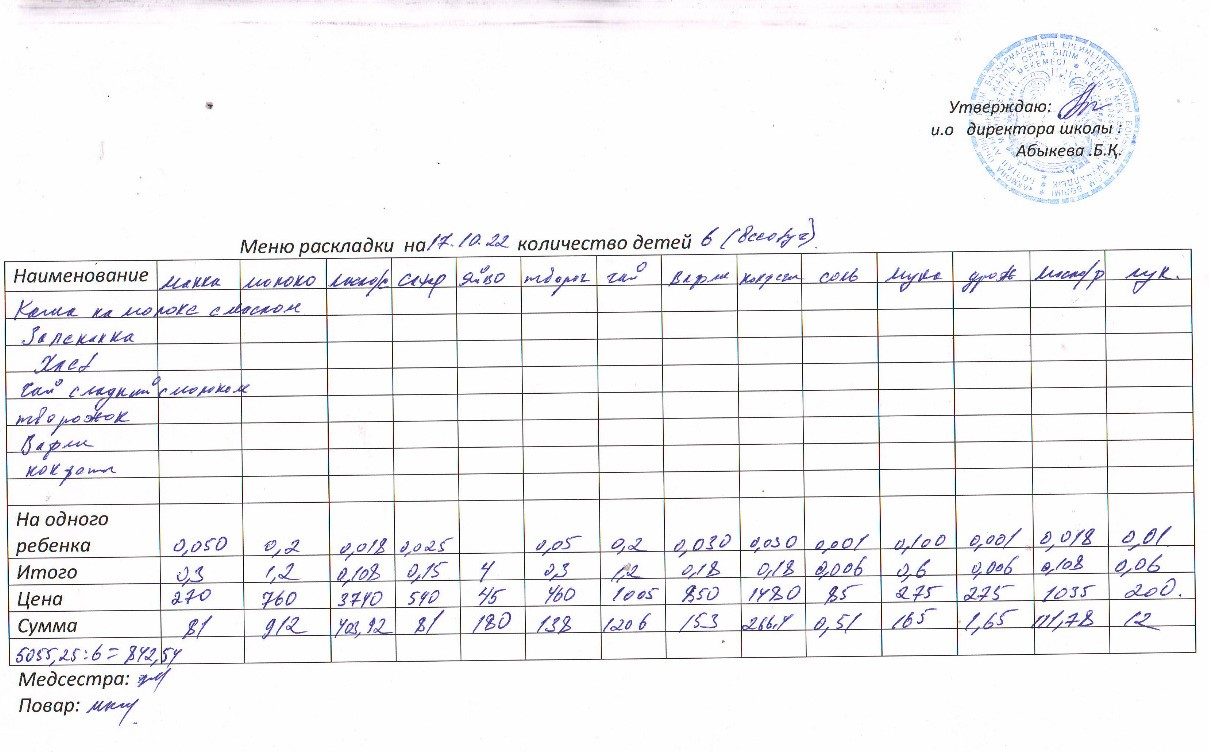 Утверждаю:
и.о директора школы :
Абыкева .Б.Қ.
Меню раскладки на 17.10.22 количество детей 6
Наименование манка молоко сахар яйцо творог чай вафли конфеты соль мука дрож масло/р лук.
Каша на молоке с маслом
Запеканка
Хлеб
Чай сладкий с молоком
творожок
Вафли
конфеты
На одного
ребенка 0,050 0,2 0,018 0,025 0,05 0,2 0,030 0,030 0,001 0,100 0,001 0,018 0,01
Итого 0,3 1,2 0,108 0,15 4 0,3 1,2 0,18 0,18 0,006 0,6 0,006 0,108 0,06
Цена 270 760 3740 540 45 460 1005 850 1480 85 275 275 1035 200.
Сумма 81 912 403,92 81 180 138 1206 153 266,4 0,51 165 1,65 111,78 12
5055,25:6=842,54
Медсестра:
Повар: